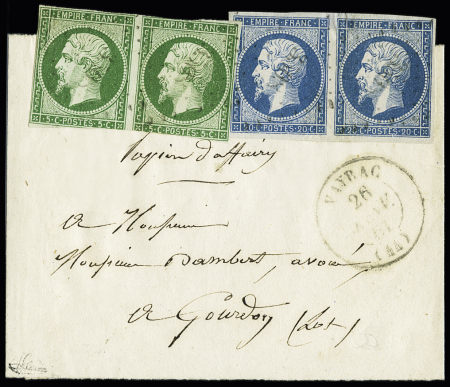 EMPIRE FRANC. EMPIRE FRANC. EMPIRE FRANC. EMPIRE FRANC.
5·C·POSTES·5·C· 5·C·POSTES·5·C· 20·C·POSTES·20·C 20·C·POSTES·20·C
Papier d'affaires
VAYRAC
26
(44)
A Monsieur
Monsieur Dambert, avoué
A Gourdon (Lot)